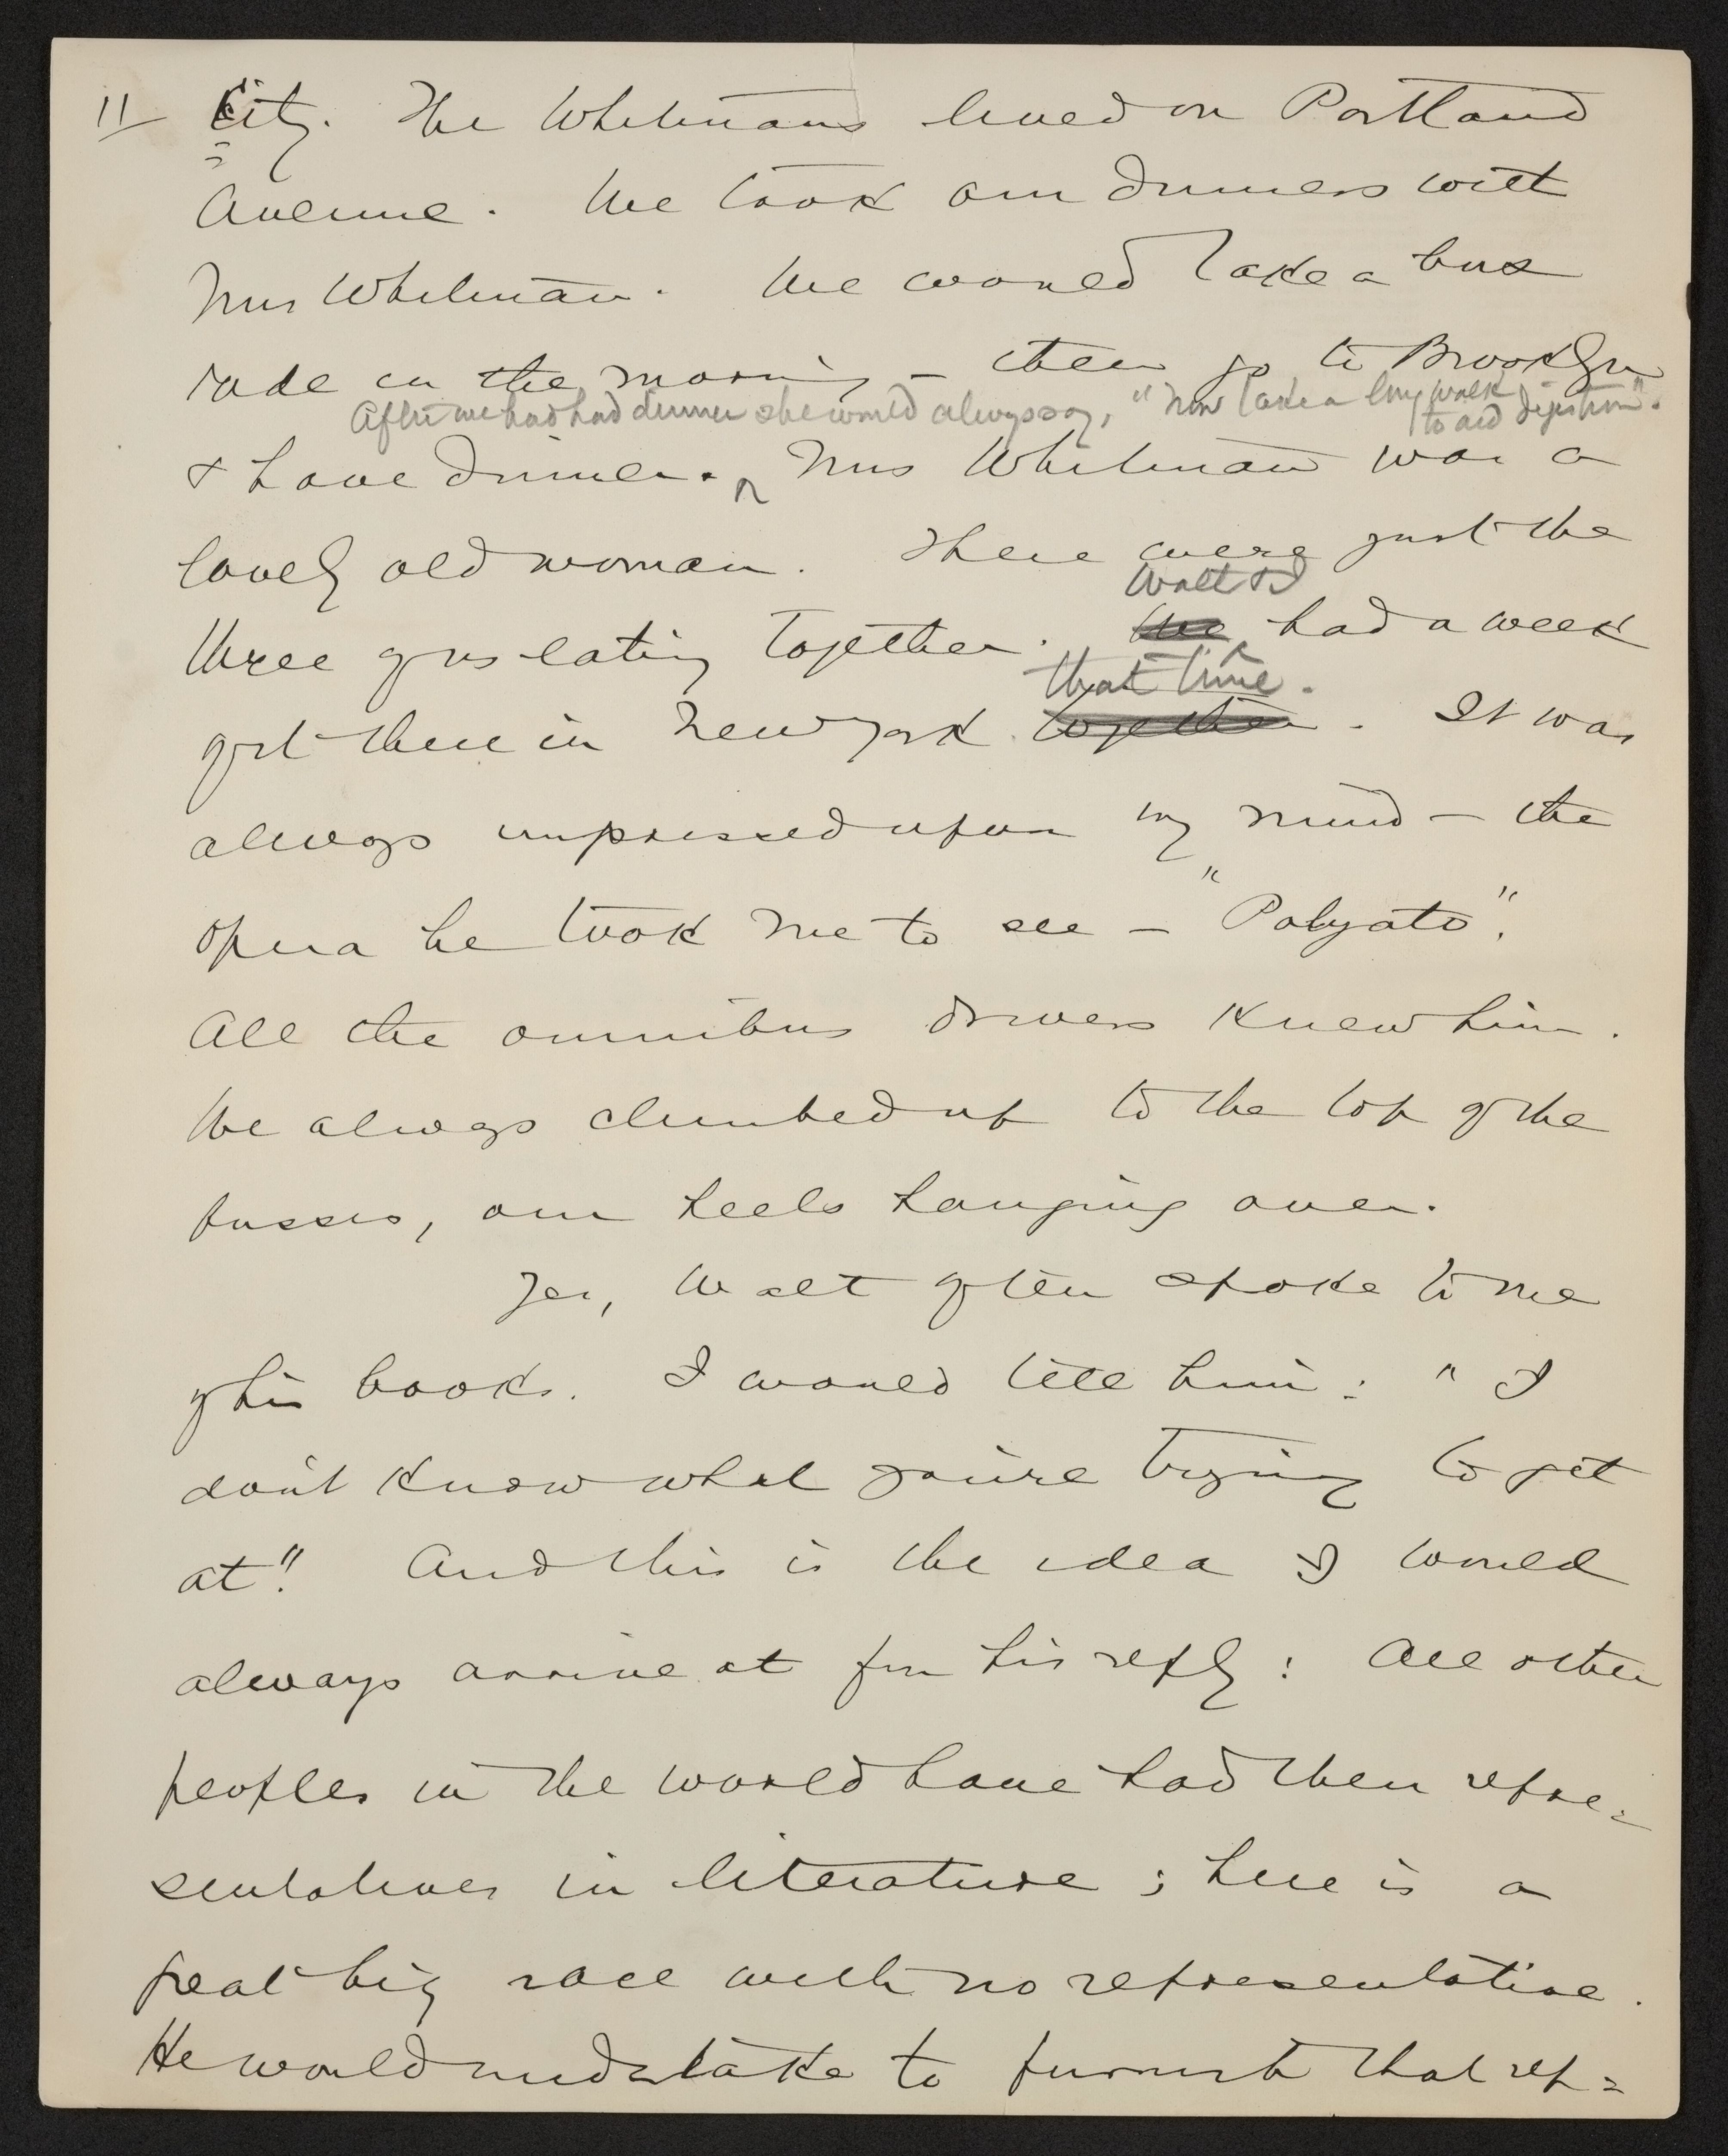 11 City. The Whitmans lived on Portland
Avenue. We took our dinners with
Mrs Whitman. We would take a bus
ride in the morning – then go to Brooklyn
After we had had dinner she would always say, "Now take a long walk
to aid digestion".
& have dinner. Mrs Whitman was a
lovely old woman. There were just the
Walt & I
three of us eating together. We had a week
that time.
of it there in New York together. It was
always impressed upon my mind – the
opera he took me to see – "Polyato".
All the omnibus drivers knew him.
We always climbed up to the top of the
busses, our heels hanging over.
Yes, Walt often spoke to me
of his books. I would tell him: "I
don't know what you're trying to get
at". And this is the idea I would
always arrive at from his reply: All other
peoples in the world have had their repre-
sentatives in literature; here is a
great big race with no representative.
He would undertake to furnish that rep=